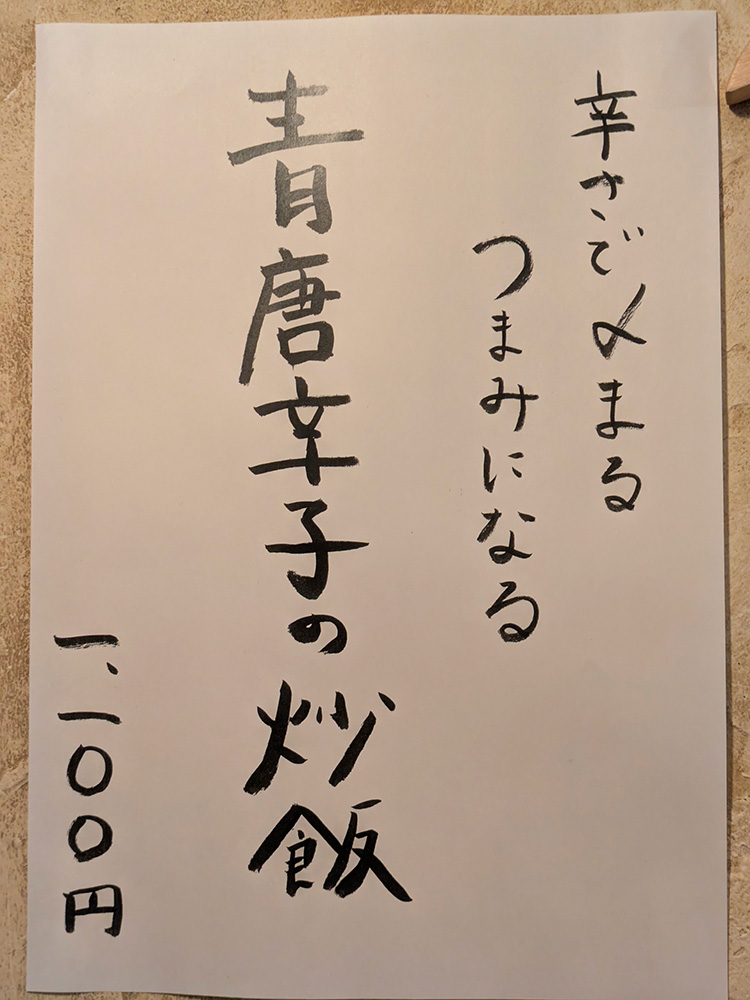 辛さで〆まる
つまみになる
青唐辛子の炒飯
一、一〇〇円